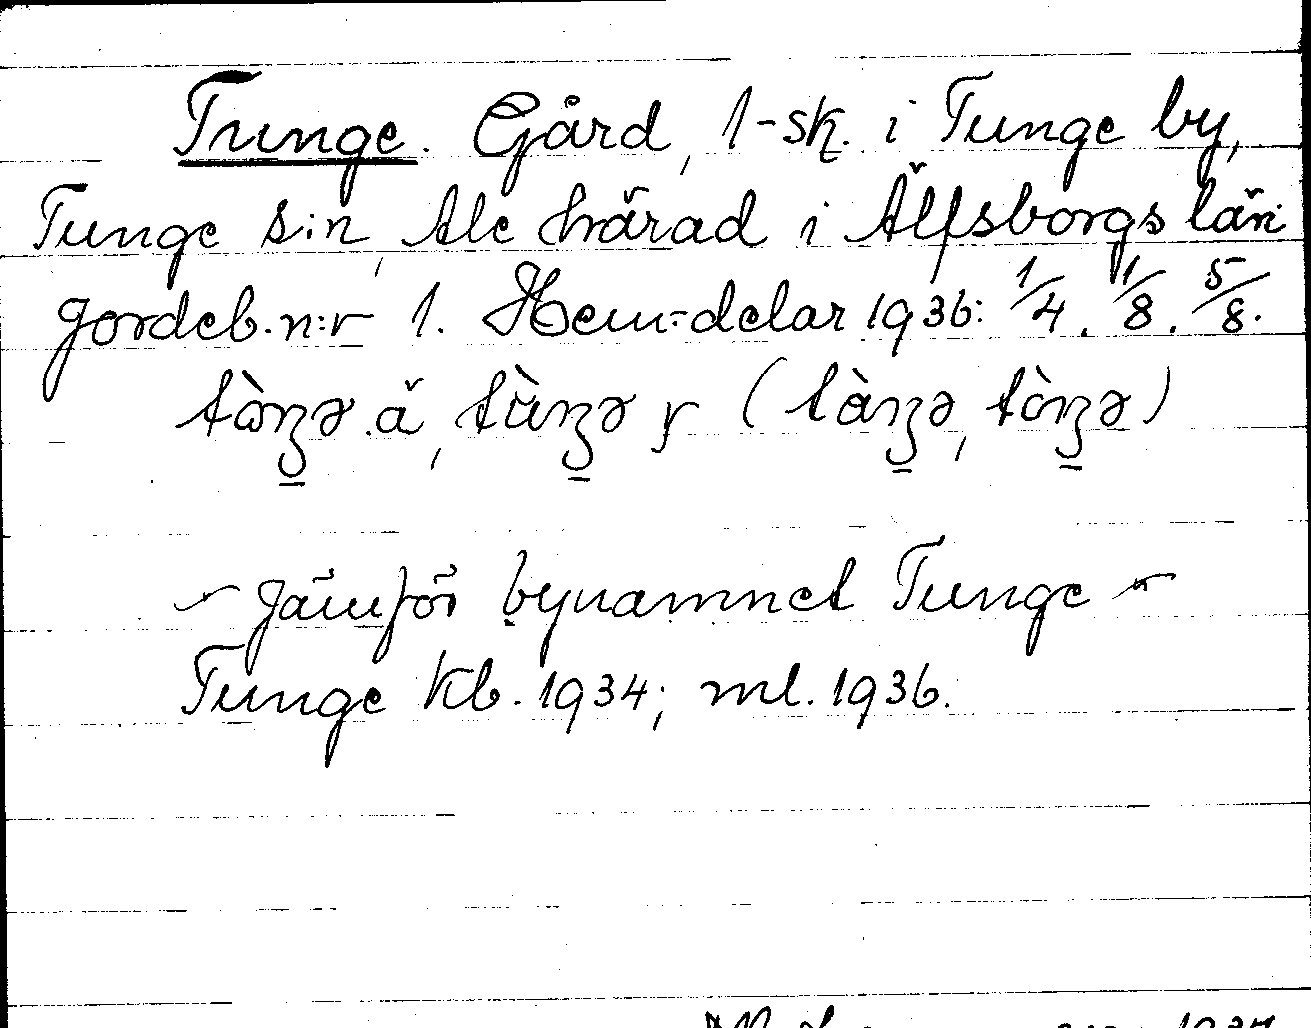 Tunge. Gård, 1-sk. i Tunge by,
Tunge s:n, Ale härad i Älfsborgs län
jordeb. n:r 1. Hem:delar 1936: 1/4. 1/8. 5/8.
ä, y ( , )
~ jämför bynamnet Tunge ~
Tunge kb. 1934; ml. 1936.
1937